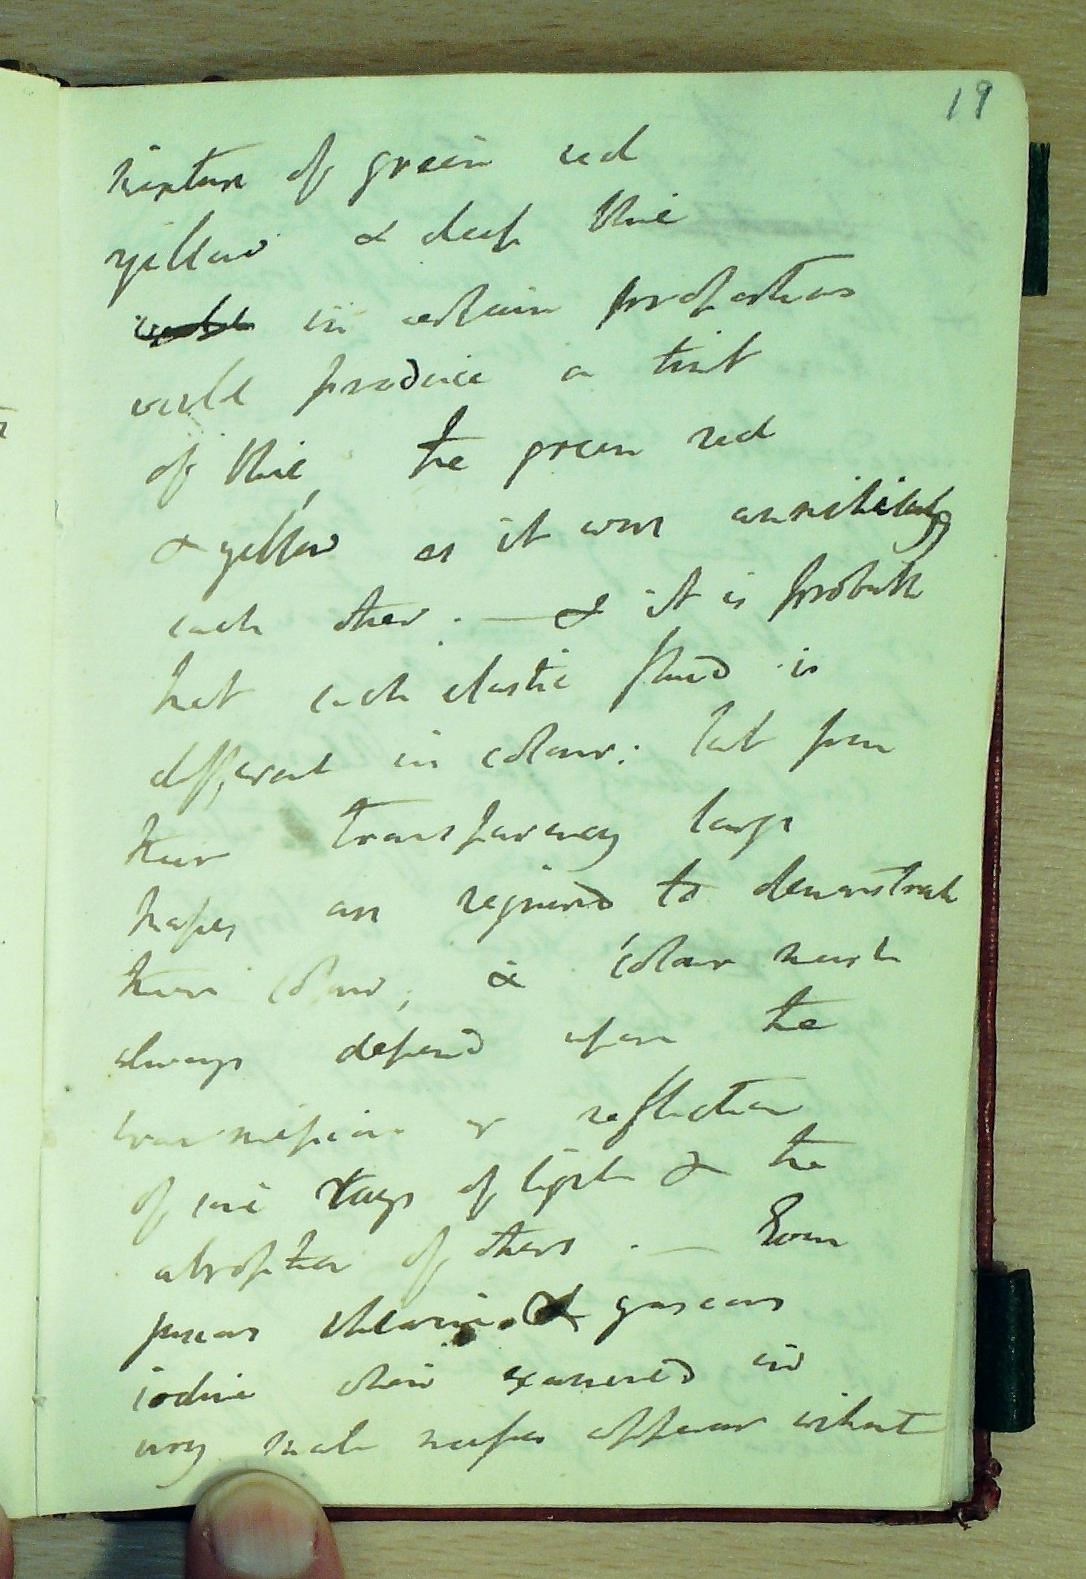 19
mixture of green red
yellow & deep blue
in certain proportions
would produce a tint
of blue, the green red
& yellow as it were annihilating
each other. — & it is probable
that each elastic fluid is
different in colour: but from
their transparency large
masses are required to demonstrate
their colour; & colour must
always depend upon the
transmission or reflection
of some rays of light & the
absorption of others. — Even
gaseous chlorine & gaseous
iodine when examined in
very small masses appear without